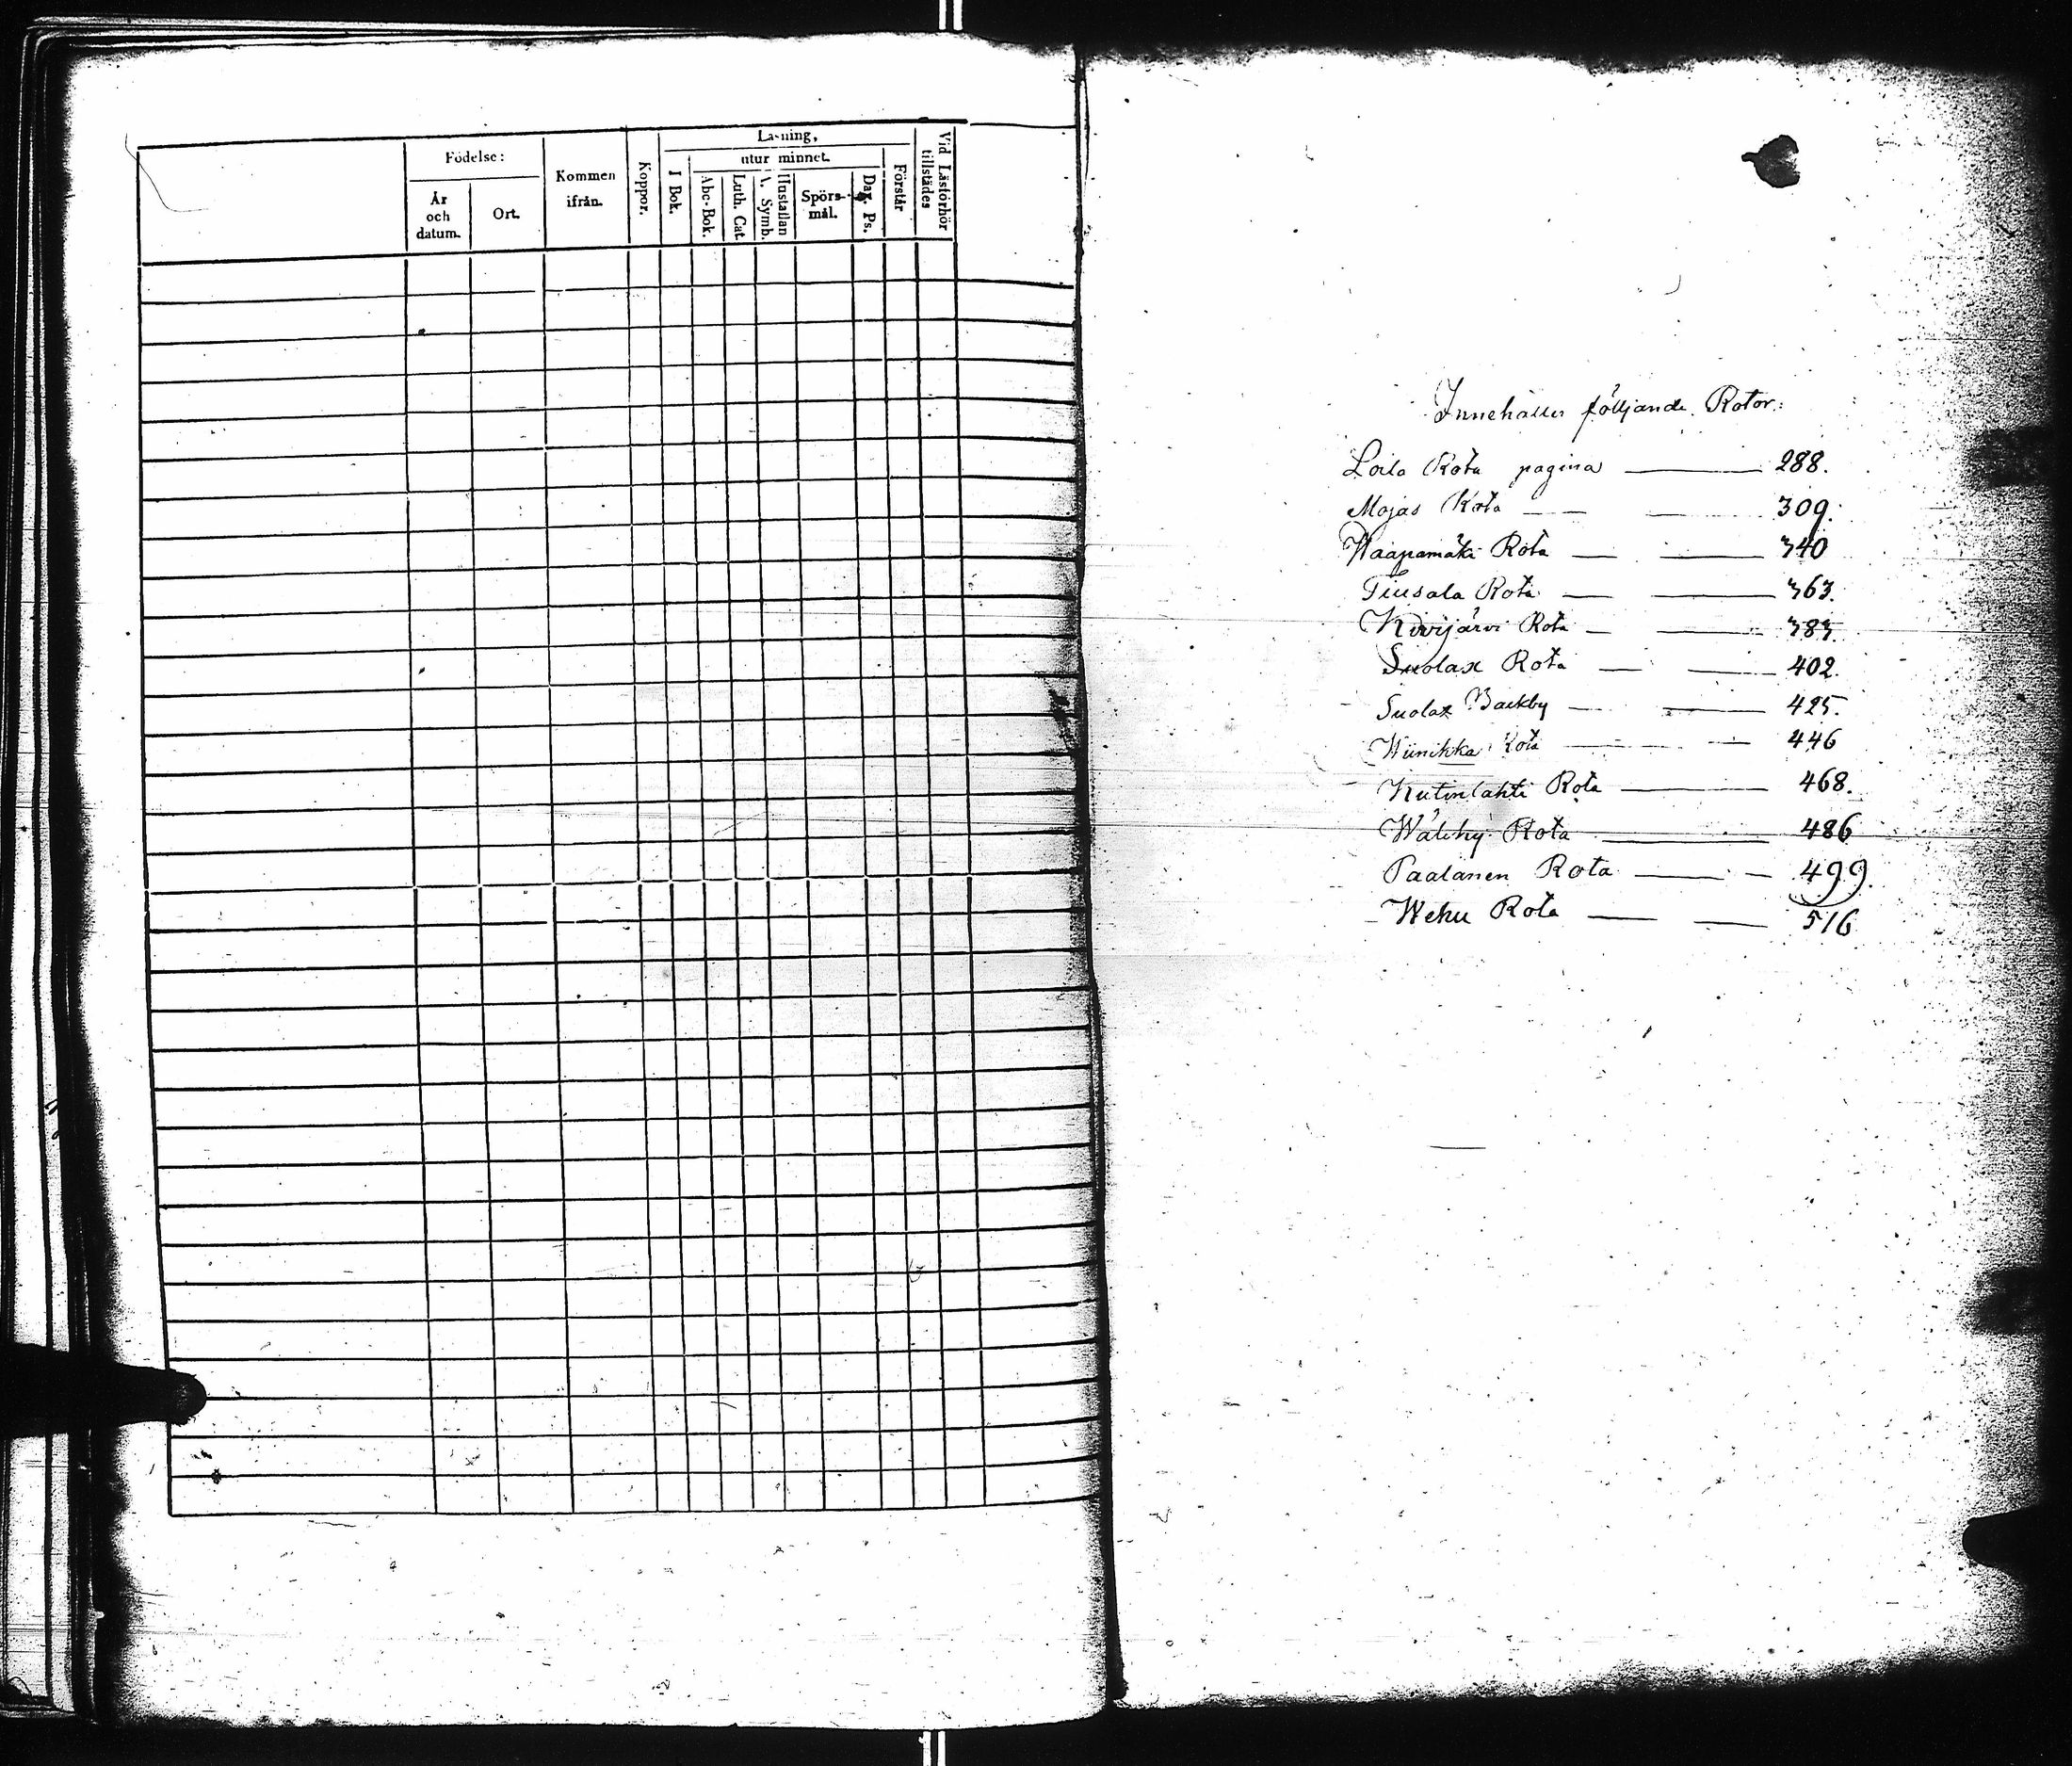 Födelse:
År
och
datum.
Ort.
Kommen
ifrån.
Koppor.
Läsning,
I Bok.
utur minnet.
Abc-Bok.
Luth. Cat.
A. Symb.
Hustaflan
Spörs-
mål.
Dav. Ps.
Förstår
Vid Läsförhör
tillstädes
Innehåller följande Rotor:
Loila Rota pagina 288.
Mojas Rota 309.
Haapamäki Rota 340
Tiusala Rota 363.
Kivijärvi Rota 383.
Suolax Rota 402.
Suolax Backby 425.
Wiinikka Rota 446
Kutinlahti Rota 468.
Wälchy Rota 486
Paalanen Rota 499.
Wehu Rota 516